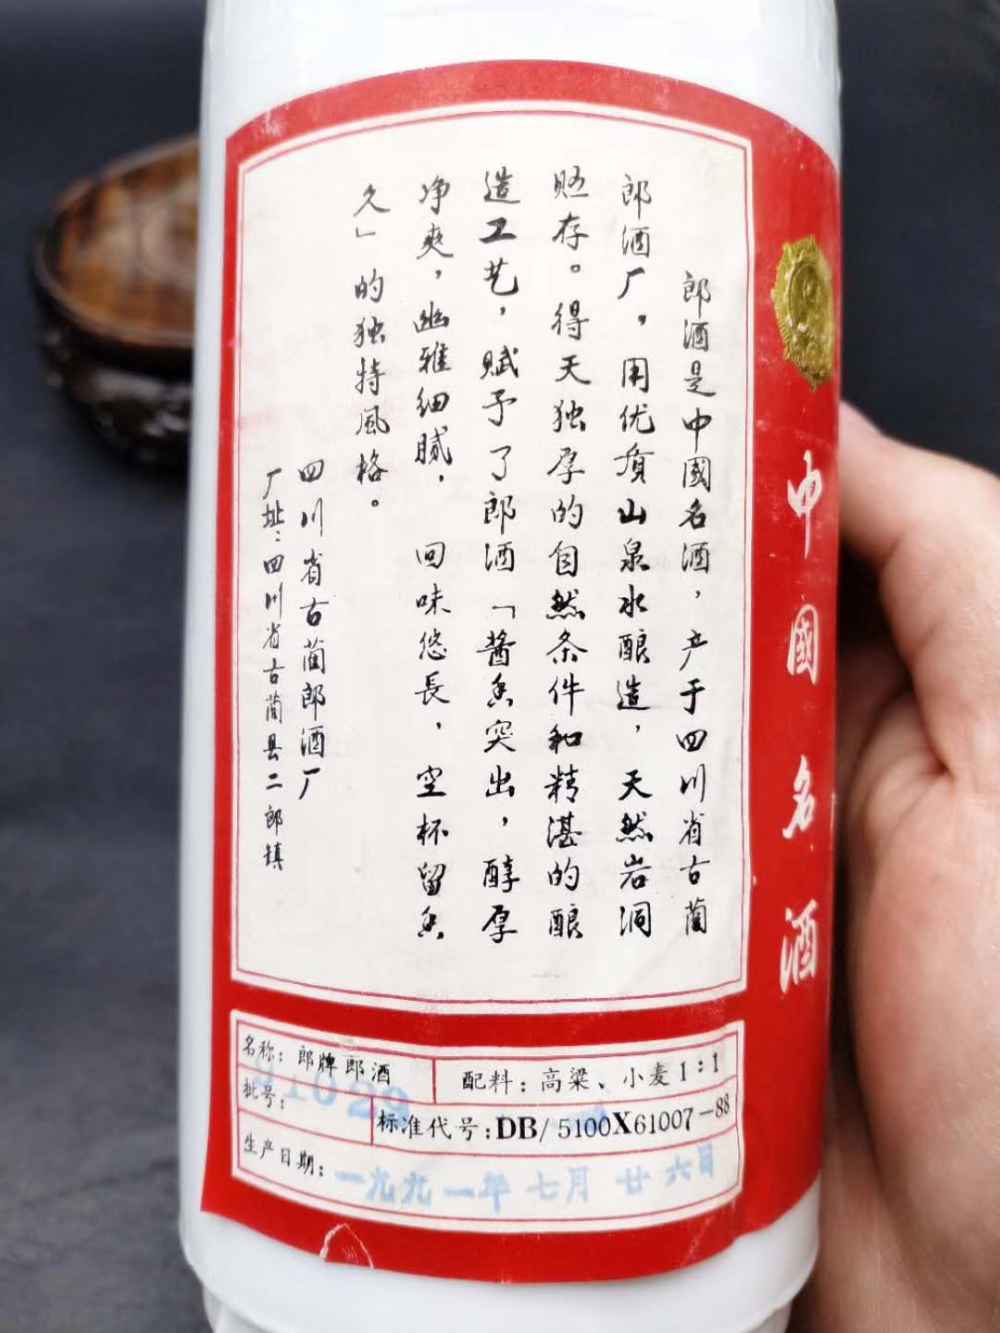 郎酒是中國名酒，产于四川省古蔺
郎酒厂，用优质山泉水酿造，天然岩洞
贮存。得天独厚的自然条件和精湛的酿
造工艺，赋予了郎酒「酱香突出，醇厚
净爽，幽雅细腻，回味悠長，空杯留香
久」的独特風格。
四川省古蔺郎酒厂
厂址：四川省古蔺县二郎镇
中國名酒
名称：郎牌郎酒
配料：高粱、小麦1:1
批号：91029
标准代号：DB/5100X61007-88
生产日期：一九九一年七月廿六日